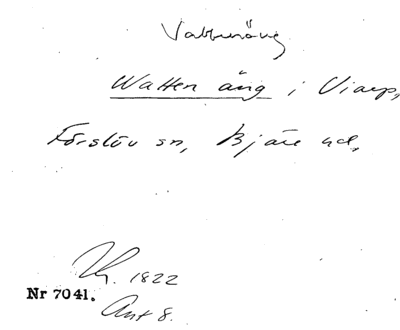 Vattenäng
Watten äng i Viarp,
Förslöv sn, Bjäre hd,
1822
Nr 7041.
Akt 8.